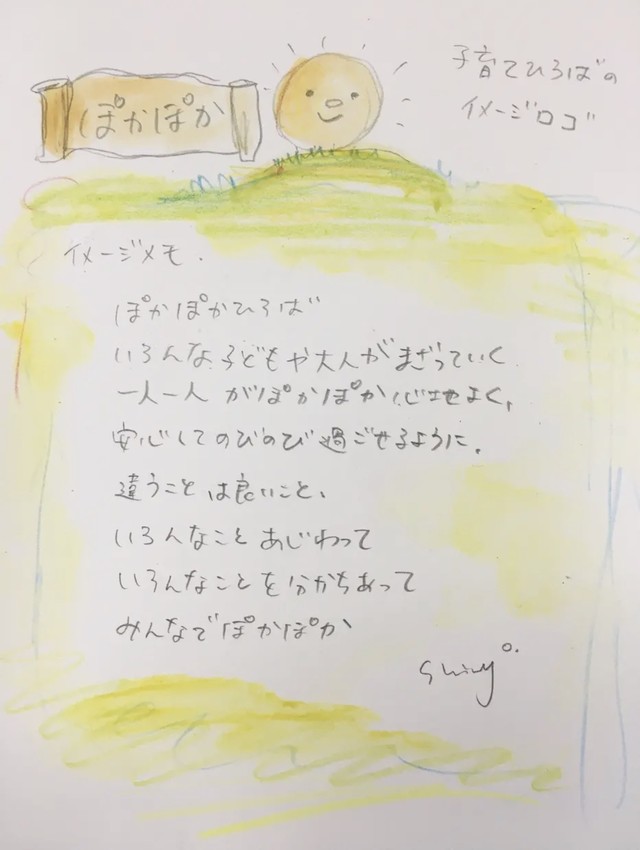 ぽかぽか
子育てひろばの
イメージロゴ
イメージメモ.
ぽかぽかひろば
いろんな子どもや大人がまざっていく
一人一人がぽかぽか心地よく,
安心してのびのび過ごせるように.
違うことは良いこと、
いろんなことあじわって
いろんなことを分かちあって
みんなでぽかぽか